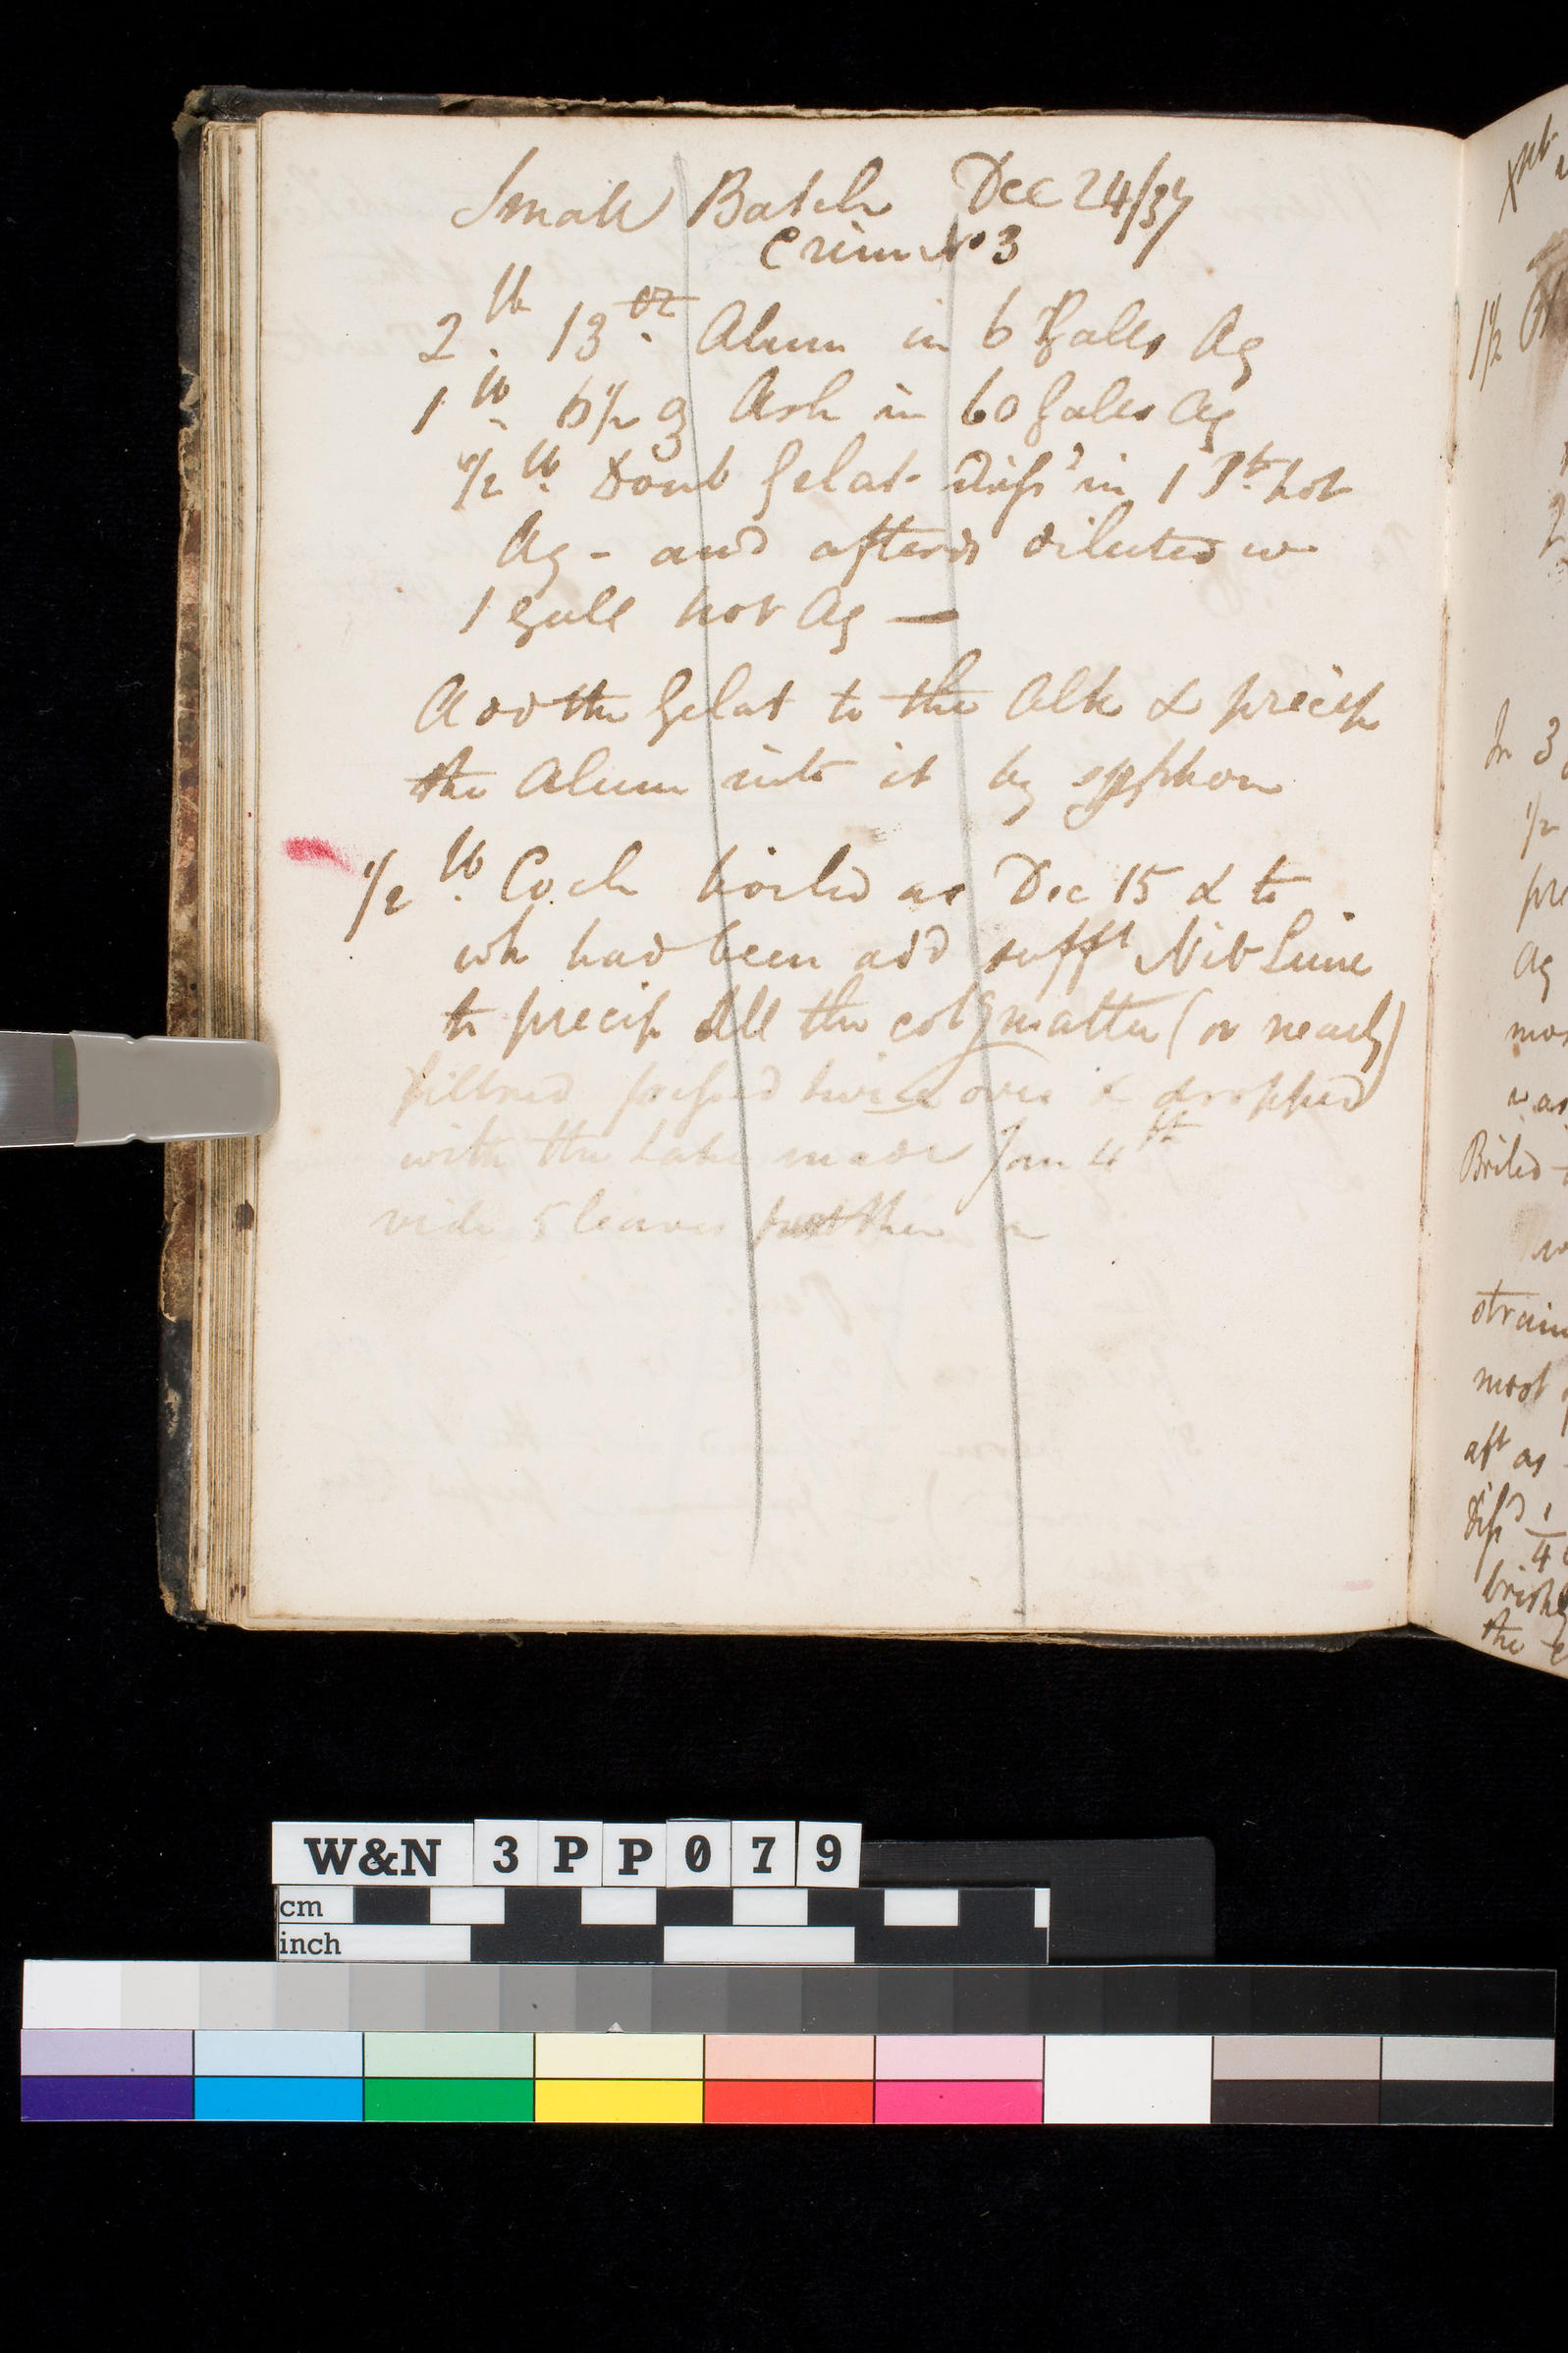 Small Batch Dec 24/37
Crim No 3
2 lb. 13 oz. Alum in 6 Galls Aq
1 lb. 6 1/2 oz Ash in 60 Galls Aq
1/2 lb. Doub Gelat. dissd in 1 Pt. hot
Aq - and afterwds diluted w
1 Gall hot Aq —
Add the Gelat to the Alk & precip
the Alum into it by syphon
1/2 lb. Coch boiled as Dec 15 & to
wh had been add sufft Nit Lime
to precip All the colg matter (or nearly)
filtred pressed twice over & dropped
with the Lake made Jan 4th
vide 5 leaves further on
1 1/2
In 3
1/2
Aq
Boiled
most
aft as
dissd 1
4
the
W&N 3PP079
cm
inch